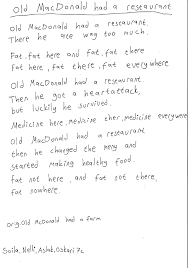 Old MacDonald had a restaurant
Old MacDonald had a restaurant.
There he ate way too much.
Fat, fat here and fat, fat there
fat here, fat there, fat everywhere
Old MacDonald had a restaurant.
Then he got a heartattack,
but luckily he survived.
Medicine here, medicine there, medicine everywhere
Old MacDonald had a restaurant
then he changed the meny and
started making healthy food.
fat not here, and fat not there,
fat nowhere.
org. Old McDonald had a farm
Soila, Nelli, Oskari 7c